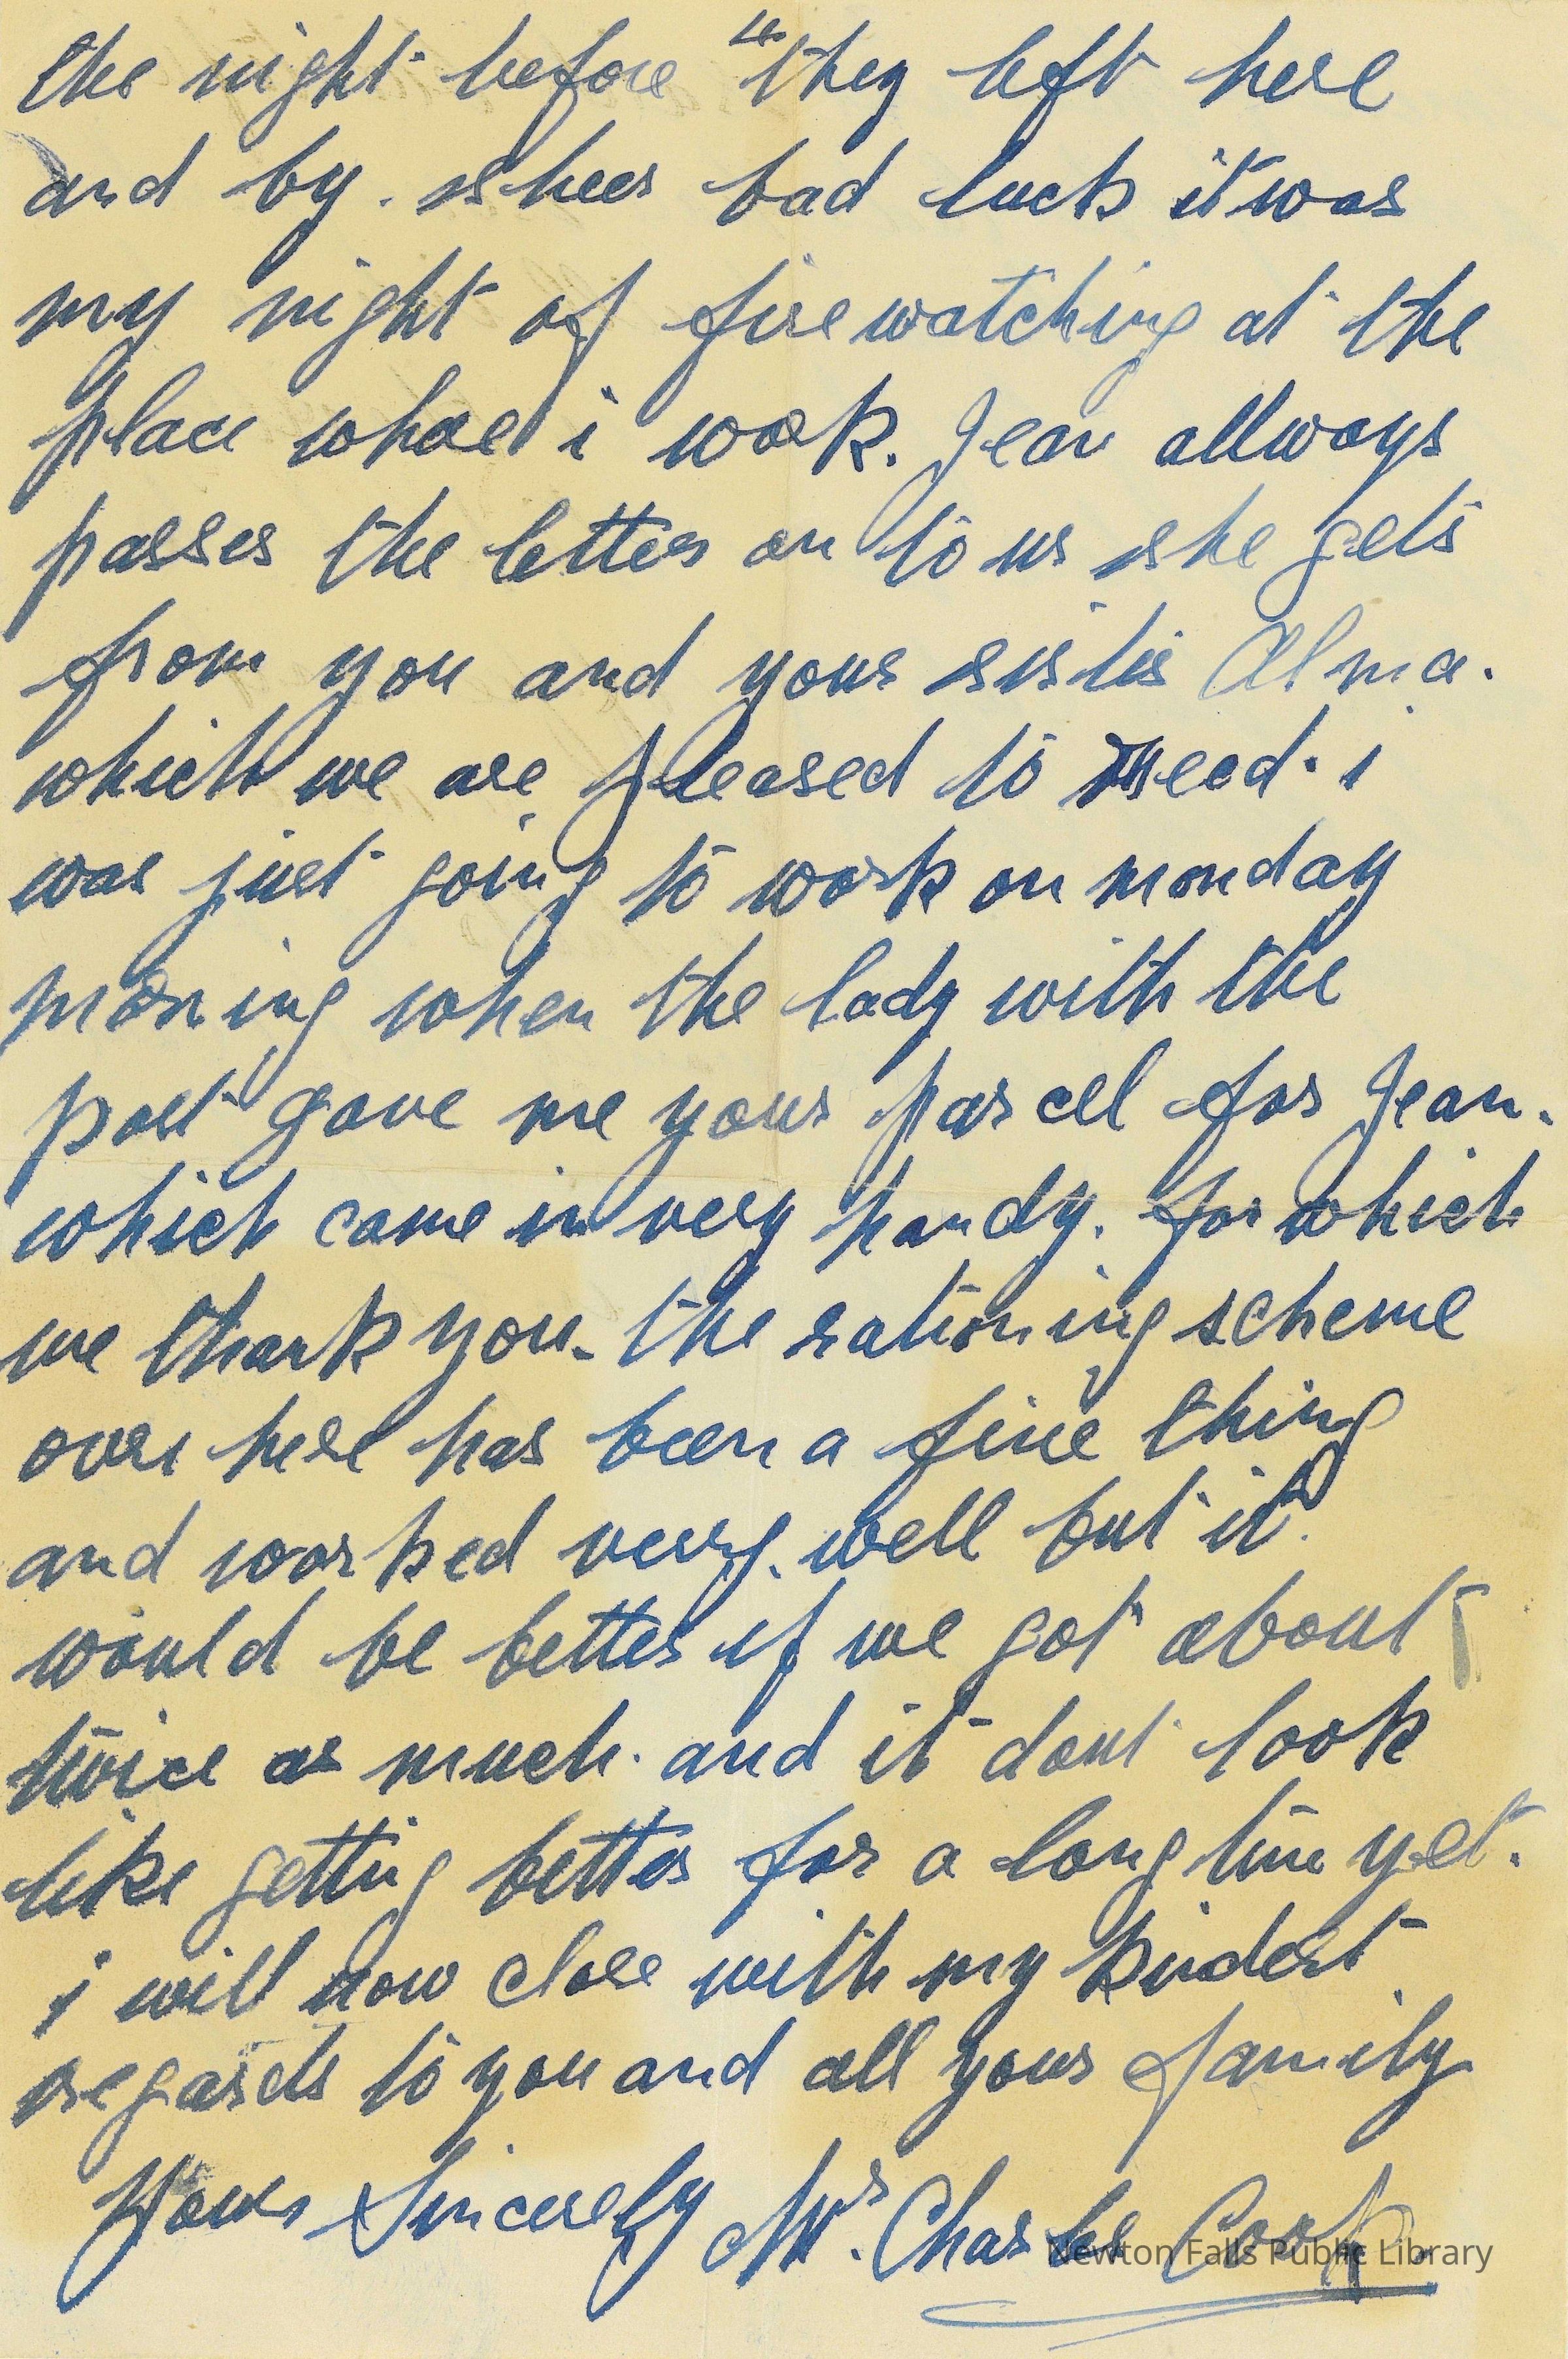 4.
the night before they left here
and by shees bad luck it was
my night of fire watching at the
place whare i work. Jean allways
passes the letters on to us she gets
from you and your sister Alma.
which we are pleased to reed. i
was just going to work on monday
morning when the lady with the
post gave me your parcel for Jean.
which came in very handy. for which
we thank you. the rationing scheme
over here has been a fine thing
and worked very well but it
would be better if we got about
twice as much. and it dont look
like getting better for a long time yet.
i will now close with my kindest
regards to you and all your family
Yours Sincerely Mr. Charles Cook
Newton Falls Public Library